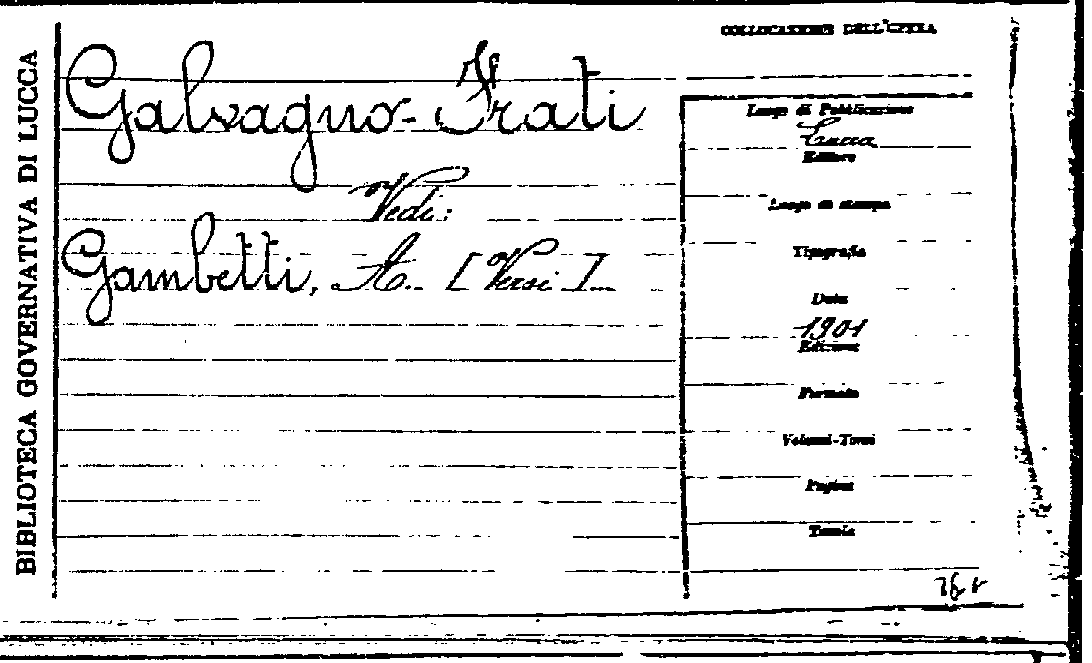 BIBLIOTECA GOVERNATIVA DI LUCCA
COLLOCAZIONE DELL'OPERA
Galvagno-Frati
Vedi:
Gambetti, A.. [Versi]
Luogo di Pubblicazione
Lucca
Editore
Luogo di stampa
Tipografia
Data
1901
Edizione
Formato
Volumi-Tomi
Pagine
Tavole